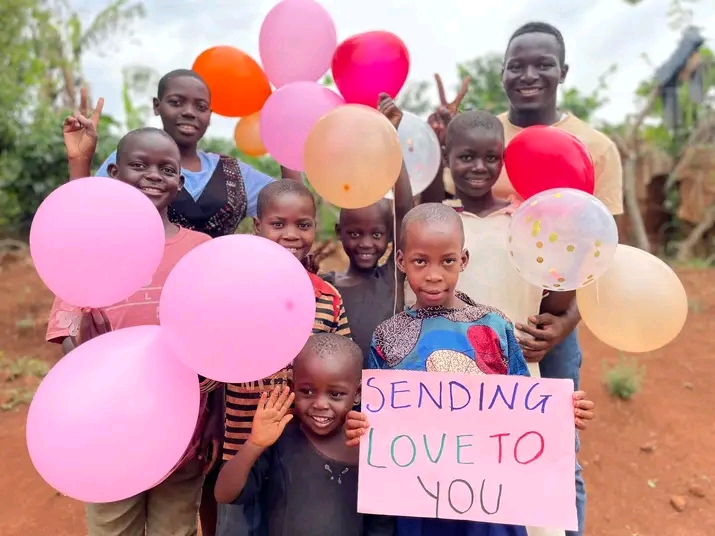 SENDING
LOVE TO
YOU